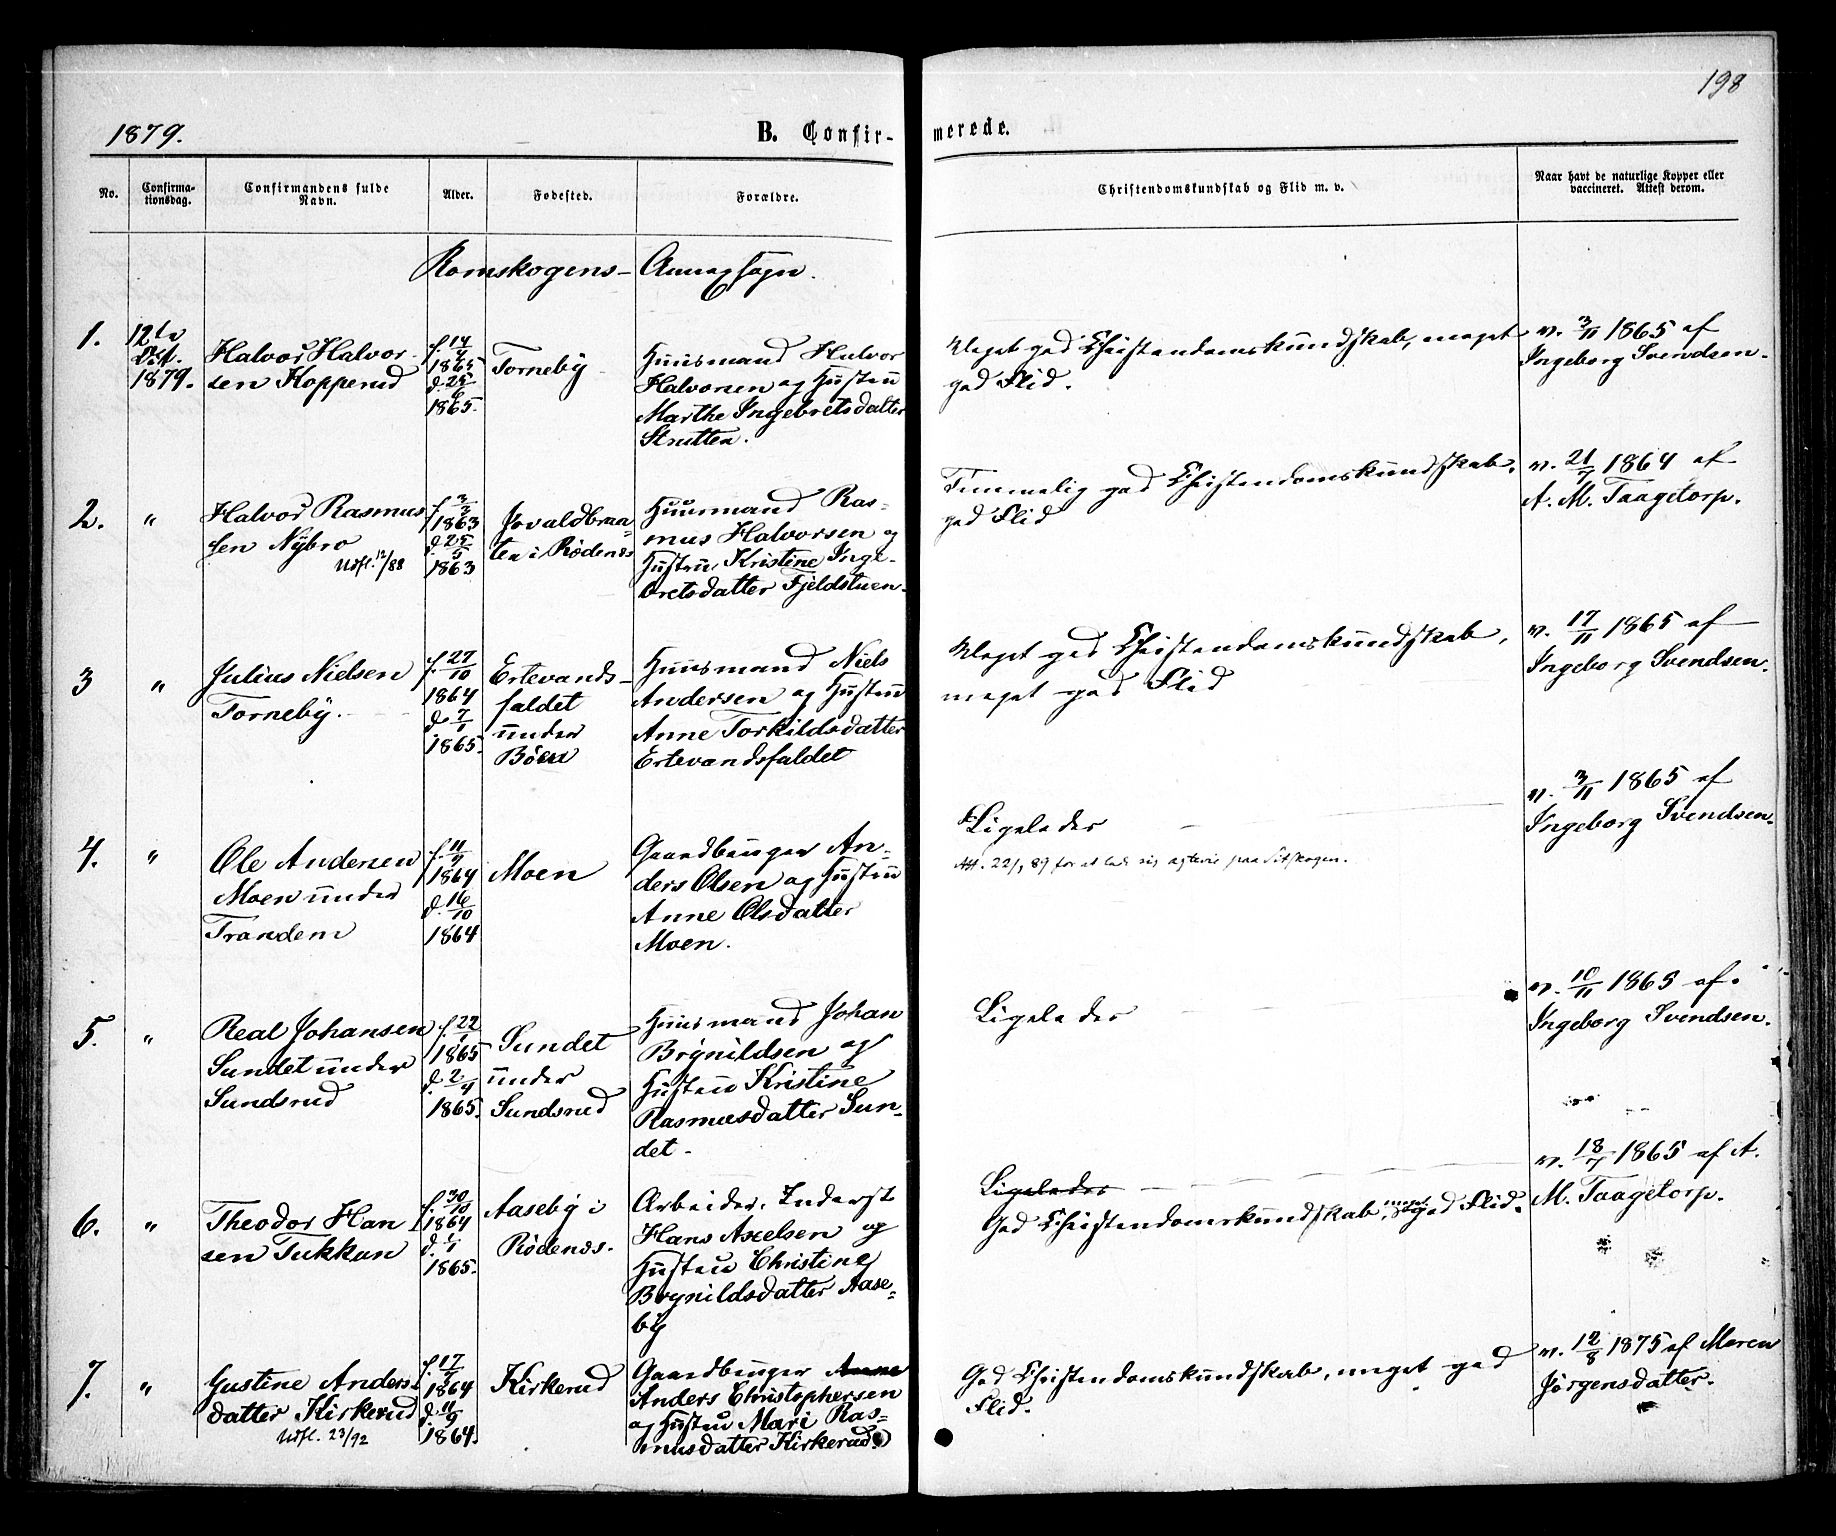 198
1879. B. Confir- merede.
No. Confirma-tionsdag. Confirmandens fulde Navn. Alder. Fødested. Forældre. Christendomskundskab og Flid m. v. Naar havt de naturlige Kopper eller vaccineret. Attest derom.
Romskogens- Annexsogn.
1.
12te
Oct.
1879.
Halvor Halvor-
sen Kopperud
f. 14/4
1865
d. 25/6
1865.
Torneby
Huusmand Halvor
Halvorsen og Hustru
Marthe Ingebretsdatter
Strutten.
Meget god Christendomskundskab, meget
god Flid.
v. 3/11 1865 af
Ingeborg Svendsen.
2.
"
Halvor Rasmus
sen Nybro
Udfl. 12/88
f. 3/3
1863
d. 25/5
1863
ten i Rødenæs
Huusmand Ras-
mus Halvorsen og
Hustru Kristine Inge-
bretsdatter Fjeldstuen.
Temmelig god Christendomskundskab,
god Flid
v. 21/7 1864 af
A. M. Taagetorp.
3
"
Julius Nielsen
Torneby.
f. 27/10
1864
d. 7/1
1865.
Ertevands-
faldet
under
Böen
Huusmand Niels
Andersen og Hustru
Anne Torkildsdatter
Ertevandsfaldet
Meget god Christendomskundskab,
meget god Flid
v. 17/11 1865 af
Ingeborg Svendsen.
4.
"
Ole Andersen
Moen under
Trandem
f. 11/9
1864
d. 16/10
1864
Moen
Gaardbruger An-
ders Olsen og Hustru
Anne Olsdatter
Moen.
Ligeledes
Att. 22/1 89 for at lade sig ægtevie paa Sitskogen.
v. 3/11 1865 af
Ingeborg Svendsen.
5.
"
Real Johansen
Sundet under
Sundsrud
f. 22/1
1865
d. 2/4
1865.
Sundet
under
Sundsrud
Huusmand Johan
Brynildsen og
Hustru Kristine
Rasmusdatter Sun-
det.
Ligeledes
v. 10/11 1865 af
Ingeborg Svendsen.
6.
"
Theodor Han
sen Tukkun
f. 30/10
1864
d. 1/1
1865.
Aaseby i
Rødenæs.
Arbeider, Inderst
Hans Axelsen og
Hustru Christine
Brynildsdatter Aase-
by
Ligeledes
God Christendomskundskab, meget god Flid.
v. 18/7 1865 af A.
M. Taagetorp.
7.
"
Gustine Anders
datter Kirkerud
Udfl. 23/92
f. 17/7
1864
d. 11/9
1864.
Kirkerud
Gaardbruger Anne
Anders Christophersen
og Hustru Mari Ras-
musdatter Kirkerud
God Christendomskundskab, meget god
Flid.
v. 12/8 1875 af Maren
Jörgensdatter.